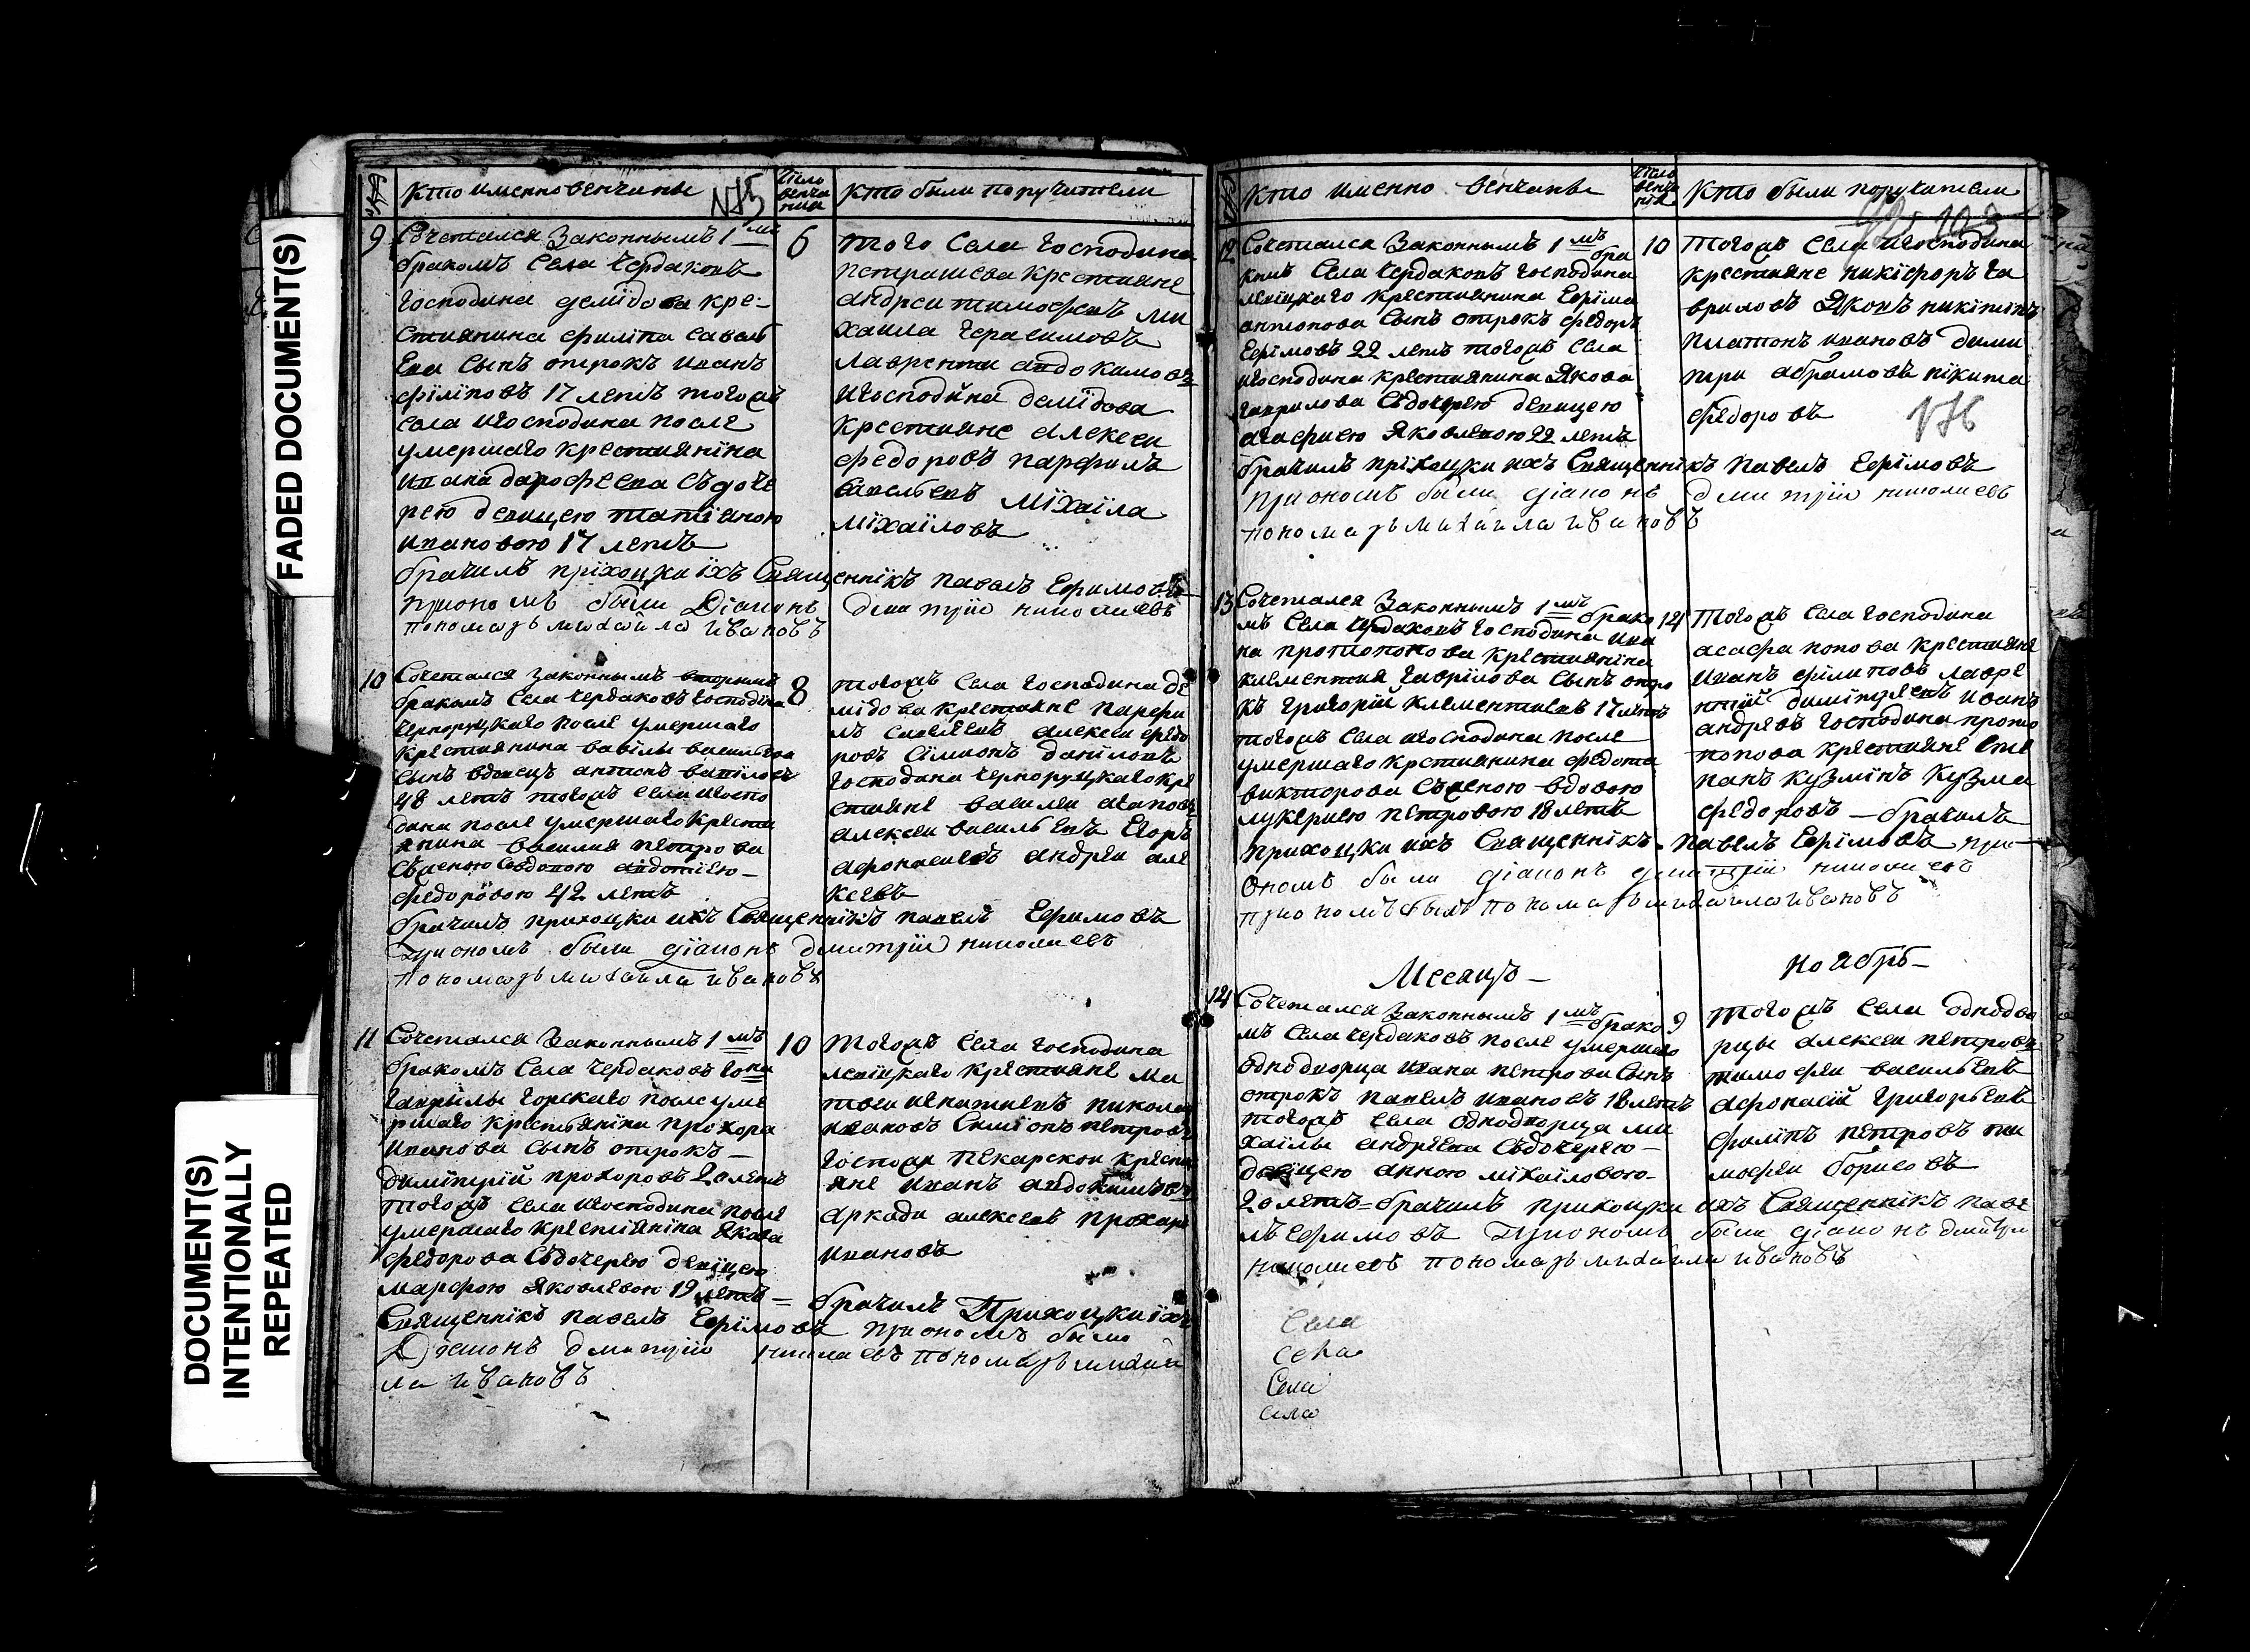 FADED DOCUMENT(S)
DOCUMENT(S)
INTENTIONALLY
REPEATED
№
кто именно венчаны
число
венча
ния
кто были поручители
9
Сочетался Законнымъ 1 мъ
бракомъ Села Чердаковъ
Господина демідова кре-
стиянина філіпа савель
Ева Сынъ отрокъ иванъ
філіповъ 17 летъ тогожъ
села игосподина после
умершаго крестиянина
ивана дарофеева Съдоче
рею девицею татіяною
ивановою 17 летъ
6
того Села Господина
петрашева крестияне
андреи тимофеевъ ми
хаила Герасимовъ
лаврентиі авдокимовъ
игосподина демідова
крестияне алексеи
федоровъ парфилъ
савельевъ міхаіла
міхаіловъ
брачилъ пріхоцки іхъ Священнікъ павелъ Ефимовъ
приономъ были Діаконъ дмитрій николаевъ
пономарь михаила ивановъ
10
Сочетался законнымъ вторымъ
бракомъ Села Чердаковъ Господина
Черноруцкаго после умершаго
крестиянина вавилы васильева
сынъ вдовецъ антипъ вавіловъ
48 летъ тогожъ села игоспо
дина после умершаго крести
янина василия петрова
Съженою вдовою авдотіею
федоровою 42 летъ
8
тогожъ Села Господина де
мідова крестияне парфи
лъ савельевъ алексеи федо
ровъ Сімионъ даніловъ
Господина Черноруцкаго кре
стияне василеи агаповъ
алексеи васильевъ Егоръ
афонасиевъ андреи але
ксеевъ
брачилъ прихоцки ихъ Священнікъ павелъ Ефимовъ
приономъ были діаконъ дмитрій николаевъ
пономарь михаила ивановъ
11
Сочетался Законнымъ 1 мъ
бракомъ Села Чердаковъ Гона
Гаврилы Горскаго после уме
ршаго крестьяніна прохора
иванова сынъ отрокъ
димітрій прохоровъ 20 летъ
тогожъ Села игосподина после
умершаго крестиянина якова
федорова Съдочерею девицею
марфою яковлевою 19 летъ
10
тогожъ Села Господина
левицкаго крестияне ма
твеи игнатиевъ николаи
ивановъ Симионъ петровъ
Госпожи пекарскои крести
яне иванъ авдокимовъ
аркади алексеевъ прохаръ
ивановъ
брачилъ Прихоцки іхъ
Священнікъ павелъ Ефімовъ приономъ были
Діаконъ дмитрій николаевъ пономарь михаи
ла ивановъ
№
кто именно венчаны
число
венча
нія
кто были поручители
12
Сочетался Законнымъ 1 мъ бра
комъ Села Чердаковъ Господина
левицкаго крестиянина Ефіма
антонова Сынъ отрокъ федоръ
Ефімовъ 22 летъ тогожъ села
игосподина крестиянина якова
гаврилова Съдочерею девицею
агафиею яковлевою 22 летъ
10
тогожъ Села игосподина
крестияне никіфоръ га
вриловъ яковъ никітінъ
платонъ ивановъ дими
три абрамовъ нікита
федоровъ
брачилъ пріхоцки ихъ Священнікъ павелъ Ефімовъ
приономъ были діаконъ дмитрій николаевъ
пономарь михаила ивановъ
13
Сочетался Законнымъ 1 мъ брако
мъ Села Чердаковъ Господина ива
на протопопова крестиянина
климентия гаврілова Сынъ отро
къ григорій климентиевъ 17 летъ
тогожъ Села игосподина после
умершаго крстиянина федота
викторова Съженою вдовою
лукериею петровою 18 летъ
14
тогожъ Села Господина
асафа попова крестияне
иванъ філиповъ лавре
нтий димітриевъ иванъ
андреевъ Господина прото
попова крестияне Сте
панъ кузмінъ кузма
федоровъ — брачилъ
прихоцки ихъ Священнікъ павелъ Ефімовъ при
ономъ были діаконъ дмитрій николаевъ
приономъ былъ пономарь михаила ивановъ
Месяцъ ноябрь
14
Сочетался Законнымъ 1 мъ брако
мъ Села Чердаковъ после умершаго
однодворца ивана петрова Сынъ
отрокъ павелъ ивановъ 18 летъ
тогожъ села однодворца ми
хаілы андреева Съдочерею
девіцею анною міхаіловою
9
тогожъ Села однодво
рцы алексеи петровъ
тимофеи васильевъ
афонасій григорьевъ
філіпъ петровъ ти
мофеи борисовъ
20 летъ = брачилъ прихоцки ихъ Священнікъ паве
лъ Ефимовъ приономъ были діаконъ дмитри
николаевъ пономарь михаила ивановъ
Села
села
Села
села